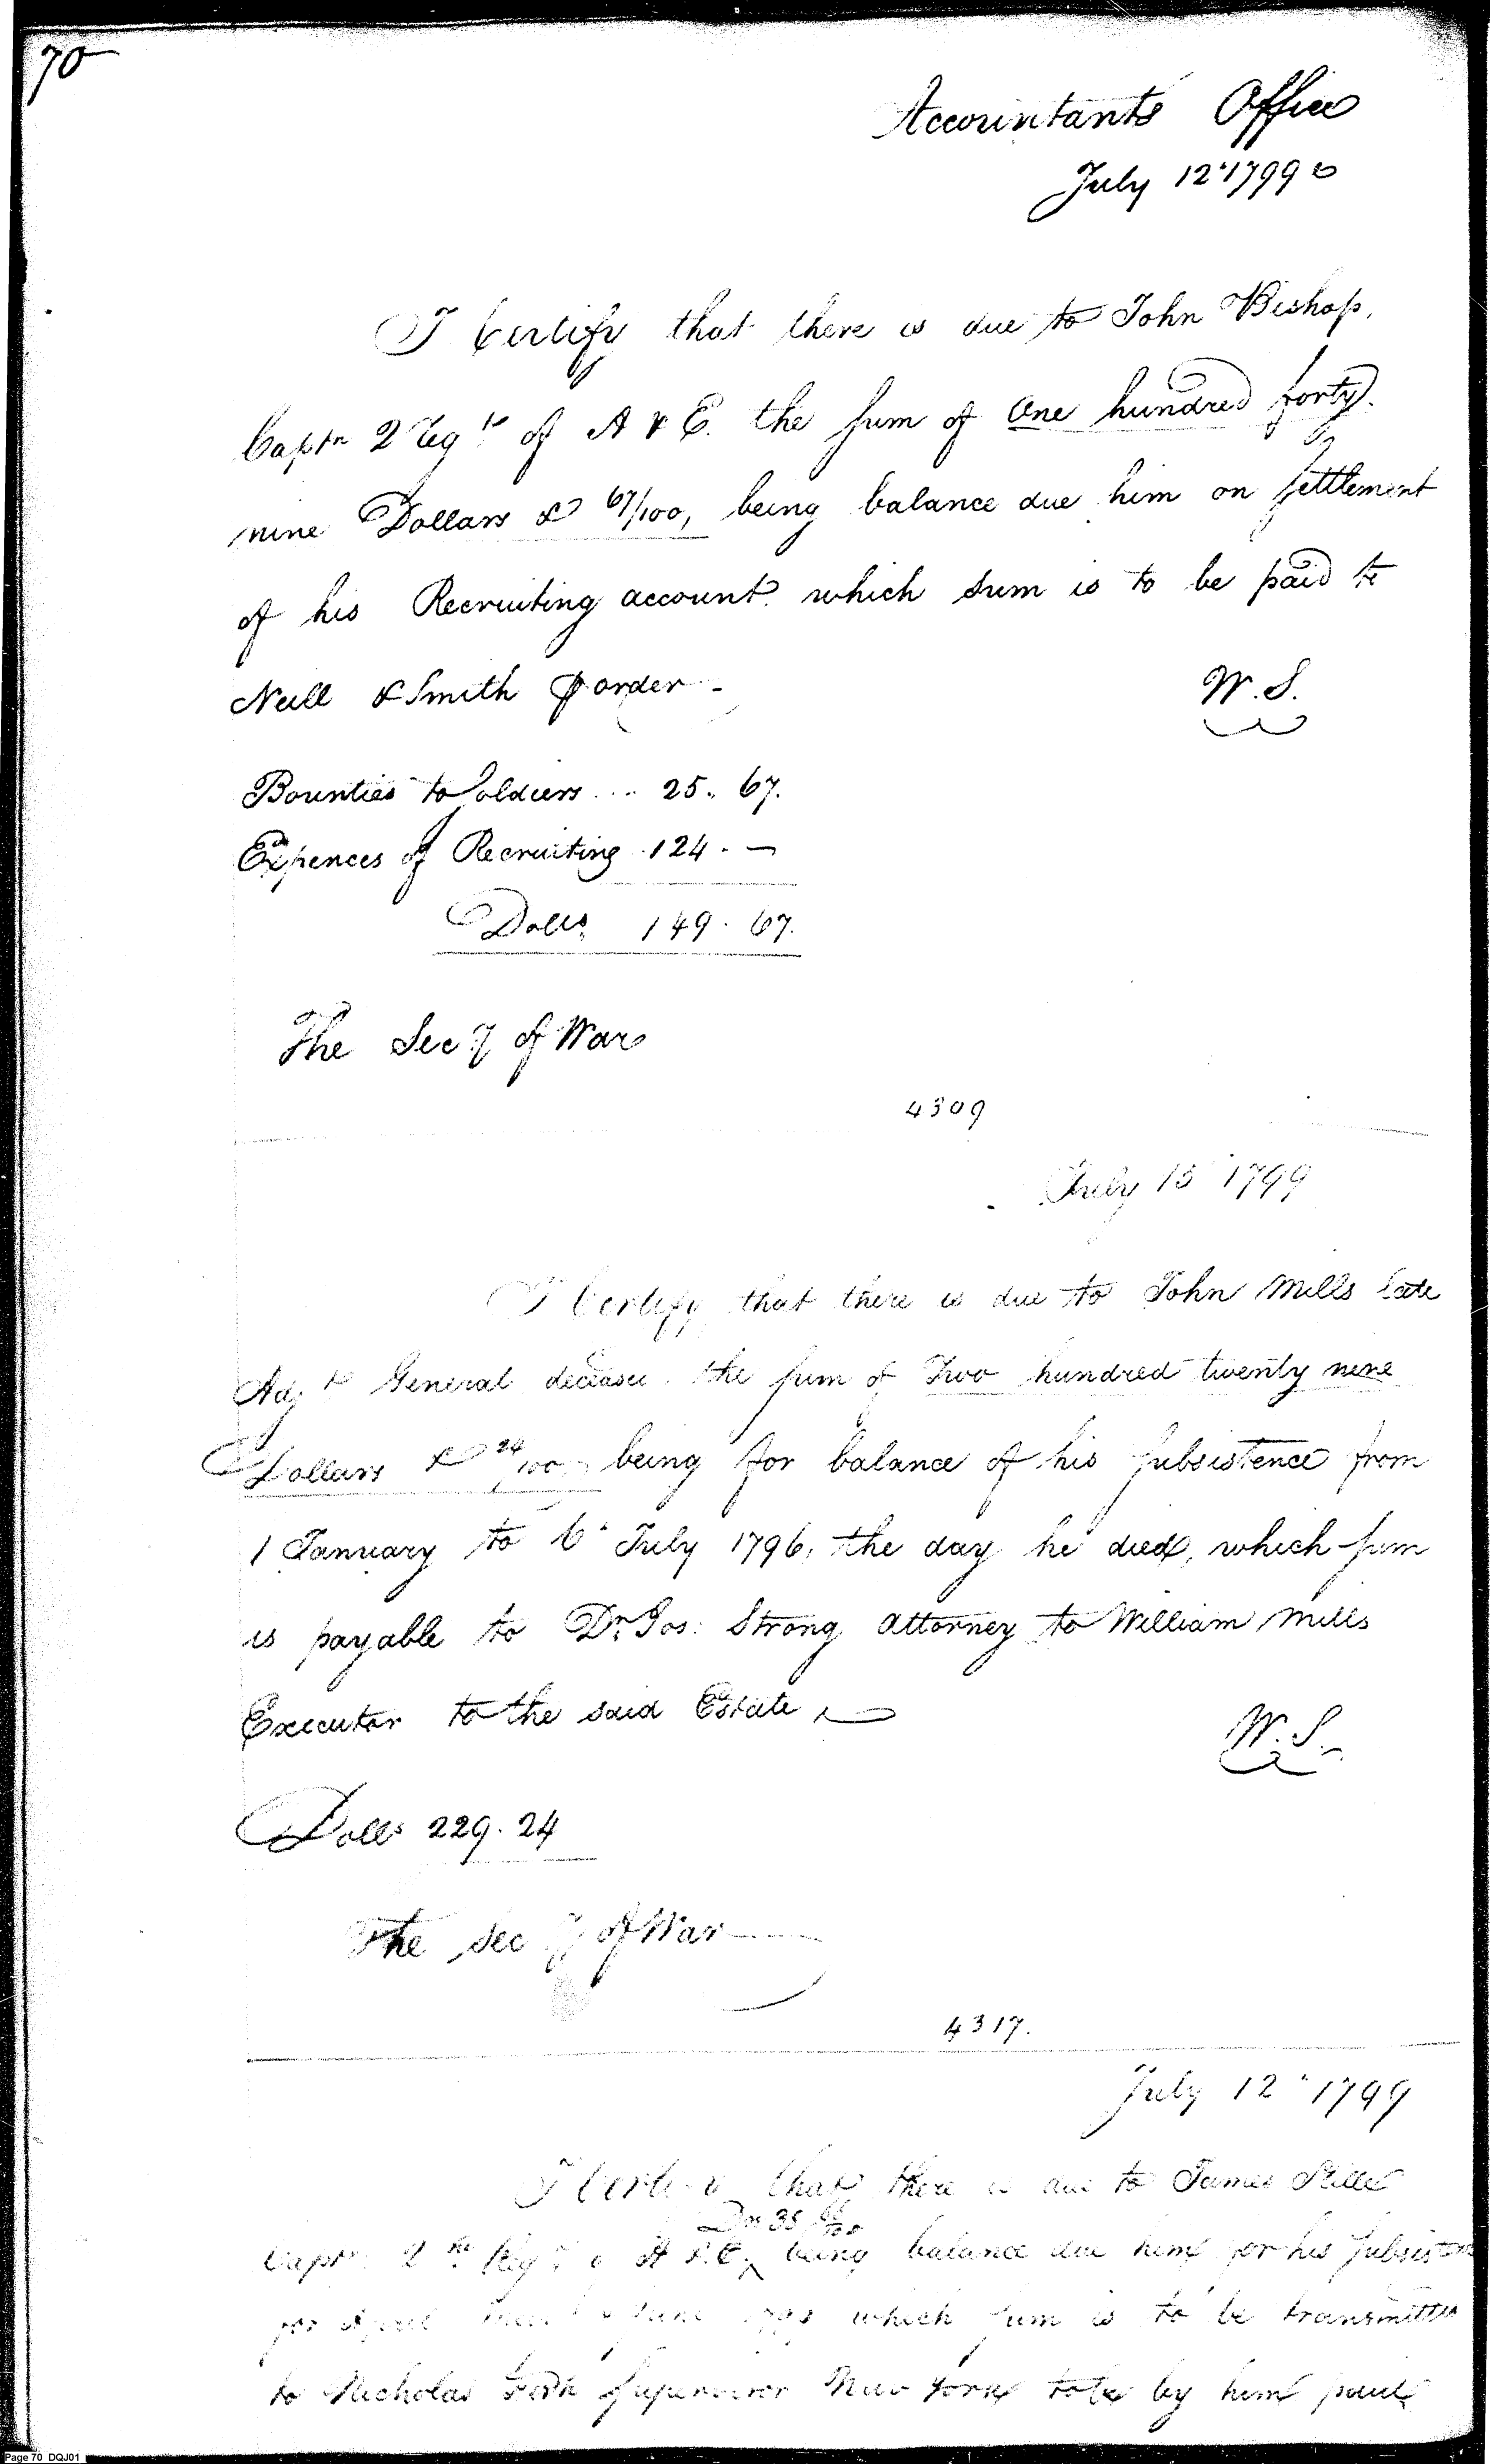 70
Accountants Office
July 12" 1799
I Certify that there is due to John Bishop,
Captn 2 Regt of A & E. the sum of One hundred forty
nine Dollars & 67/100, being balance due him on settlement
of his Recruiting account. which sum is to be paid to
Neill & Smith p order -
W. S.
Bounties to Soldiers ... 25. 67.
Expences of Recruiting . 124 . —
Dolls 149. 67.
The Secy of War
4309
July 13 1799
I Certify that there is due to John Mills late
Adjt General deceased. the sum of Two hundred twenty nine
Dollars & 24/100, being for balance of his subsistence from
1 January to 6" July 1796, the day he died, which sum
is payable to Dr. Jos: Strong Attorney to William Mills
Executor to the said Estate
W. S.
Dolls 229. 24
The Secy of War
4317.
July 12" 1799
I Certify that there is due to James Stille
Drs 35
Captn 2nd Regt of A & E, being balance due him for his subsistence
for April which sum is to be transmitted
to Nicholas Fish Supervisor New York to be by him paid